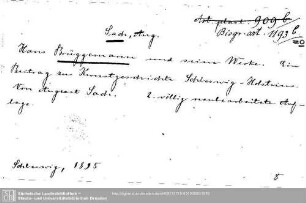 Art. plast. 909 b
Biogr. art. 1193 b
Sach, Aug.
Hans Brüggemann und seine Werke. Ein
Beitrag zur Kunstgeschichte Schleswig-Holsteins.
Von August Sach. 2. völlig neubearbeitete Auf-
lage.
Schleswig, 1895
8
Sächsische Landesbibliothek -
Staats- und Universitätsbibliothek Dresden